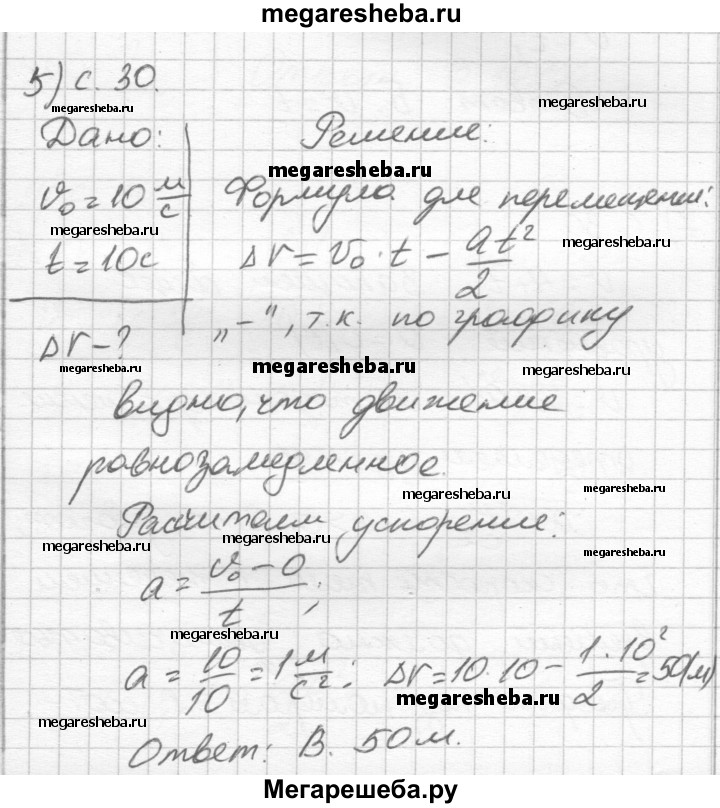 megaresheba.ru
5) с. 30.
megaresheba.ru
megaresheba.ru
Дано:
Решение:
megaresheba.ru
v₀ = 10 м/с
Формула для перемещения:
megaresheba.ru
megaresheba.ru
t = 10с
Δr = v₀ · t − at²/2
Δr − ?
„−", т.к. по графику
megaresheba.ru
megaresheba.ru
megaresheba.ru
видно, что движение
равнозамедленное.
megaresheba.ru
Расчитаем ускорение:
megaresheba.ru
megaresheba.ru
a = v₀ − 0/t;
megaresheba.ru
a = 10/10 = 1 м/с²; Δr = 10·10 − 1·10²/2 = 50(м)
megaresheba.ru
megaresheba.ru
Ответ: В. 50м.
Мегарешеба.ру